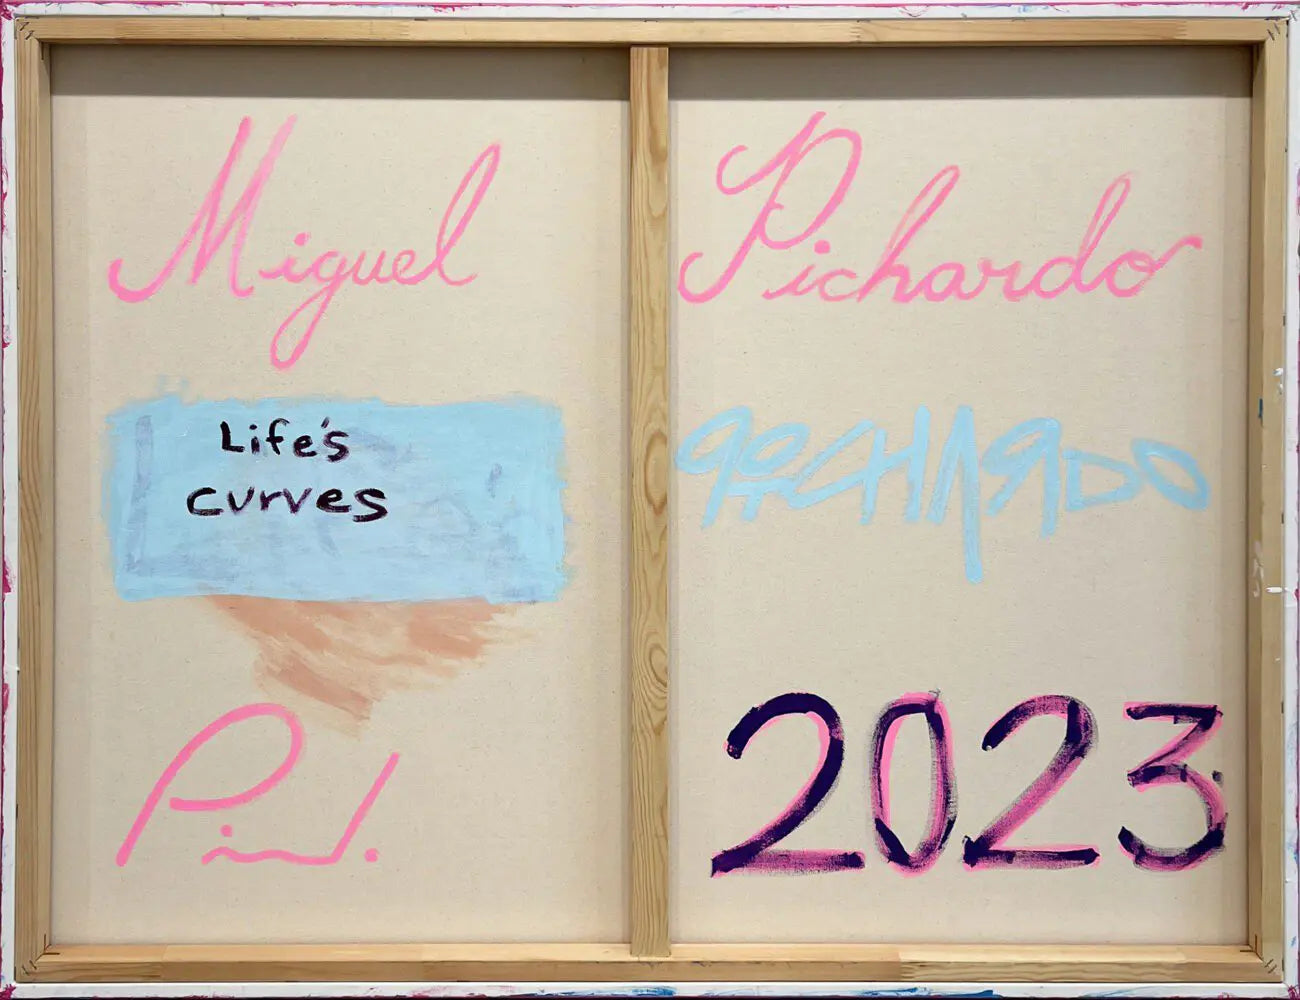 Miguel Pichardo
Life's
curves
PICHARDO
2023